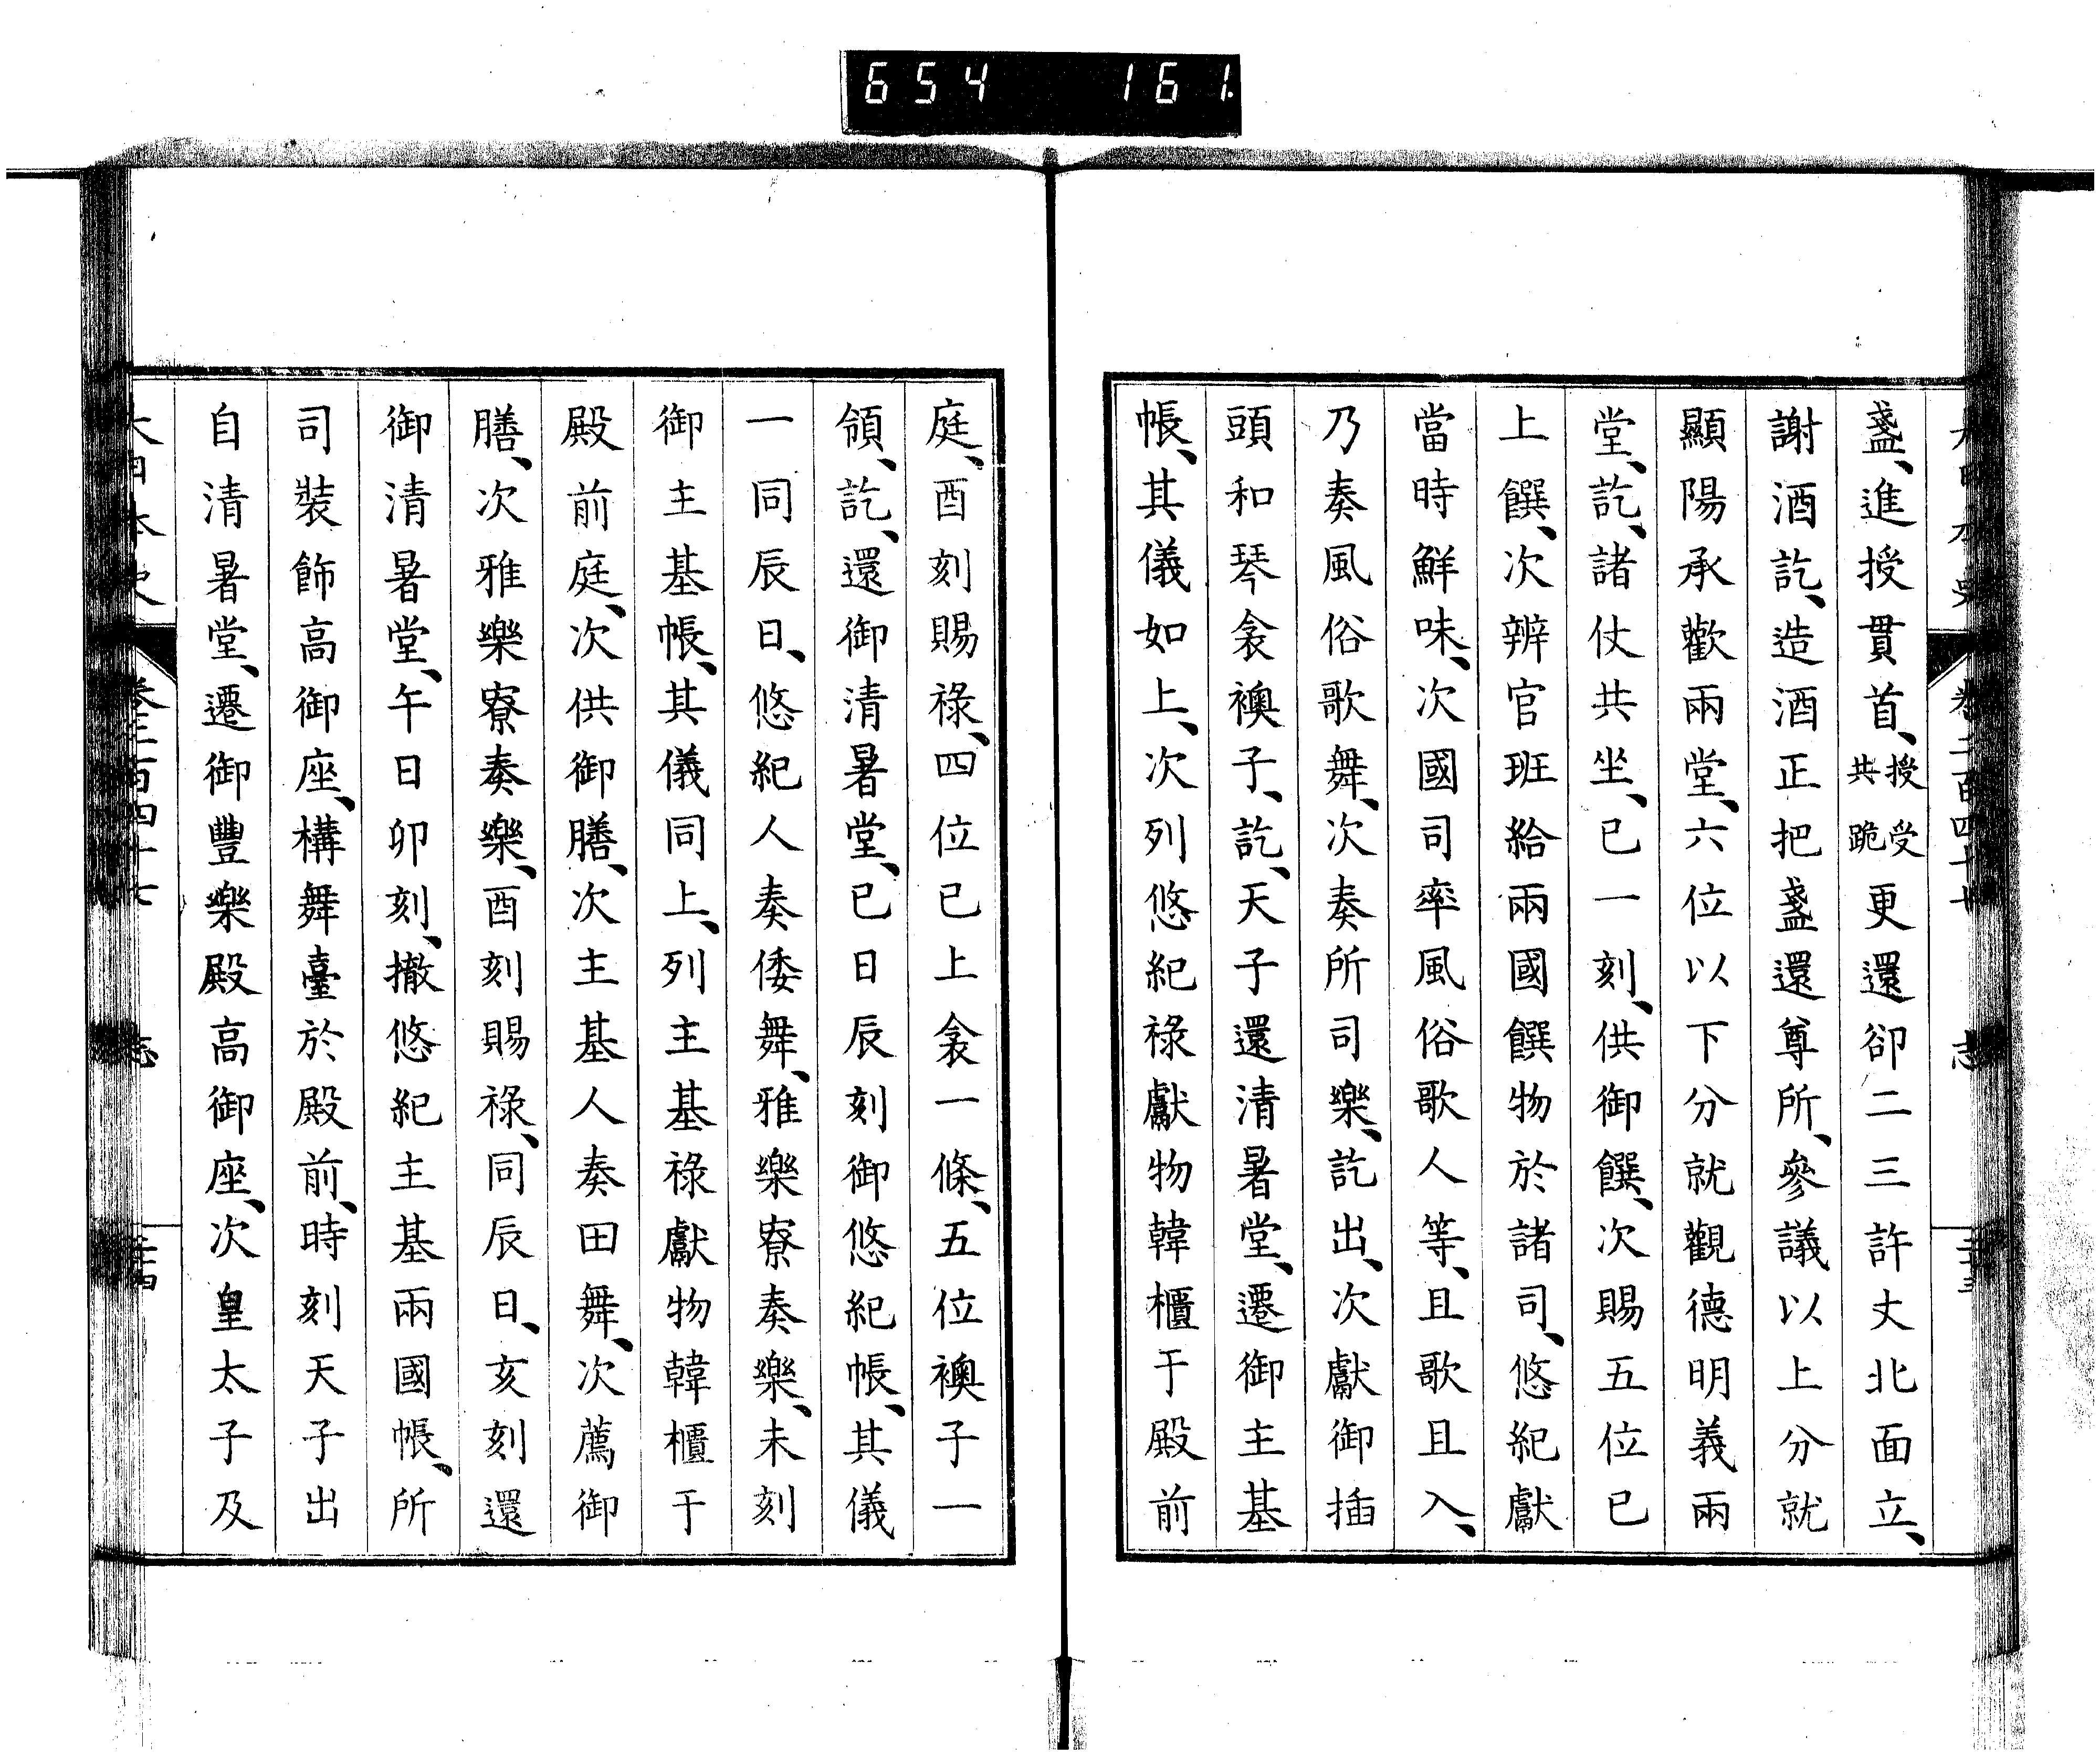 654 161.
大日本史 卷二百四十七 志
盞、進授貫首、授受共跪更還卻二三許丈北面立、
謝酒訖、造酒正把盞還尊所、參議以上分就
顯陽承歡兩堂、六位以下分就觀德明義兩
堂、訖、諸仗共坐、已一刻、供御饌、次賜五位已
上饌、次辨官班給兩國饌物於諸司、悠紀獻
當時鮮味、次國司率風俗歌人等、且歌且入、
乃奏風俗歌舞、次奏所司樂、訖出、次獻御插
頭和琴衾襖子、訖、天子還清暑堂、遷御主基
帳、其儀如上、次列悠紀祿獻物韓櫃于殿前
庭、酉刻賜祿、四位已上衾一條、五位襖子一
領、訖、還御清暑堂、已日辰刻御悠紀帳、其儀
一同辰日、悠紀人奏倭舞、雅樂寮奏樂、未刻
御主基帳、其儀同上、列主基祿獻物韓櫃于
殿前庭、次供御膳、次主基人奏田舞、次薦御
膳、次雅樂寮奏樂、酉刻賜祿、同辰日、亥刻還
御清暑堂、午日卯刻、撤悠紀主基兩國帳、所
司裝飾高御座、構舞臺於殿前、時刻天子出
自清暑堂、遷御豐樂殿高御座、次皇太子及
大日本史 卷二百四十七 志